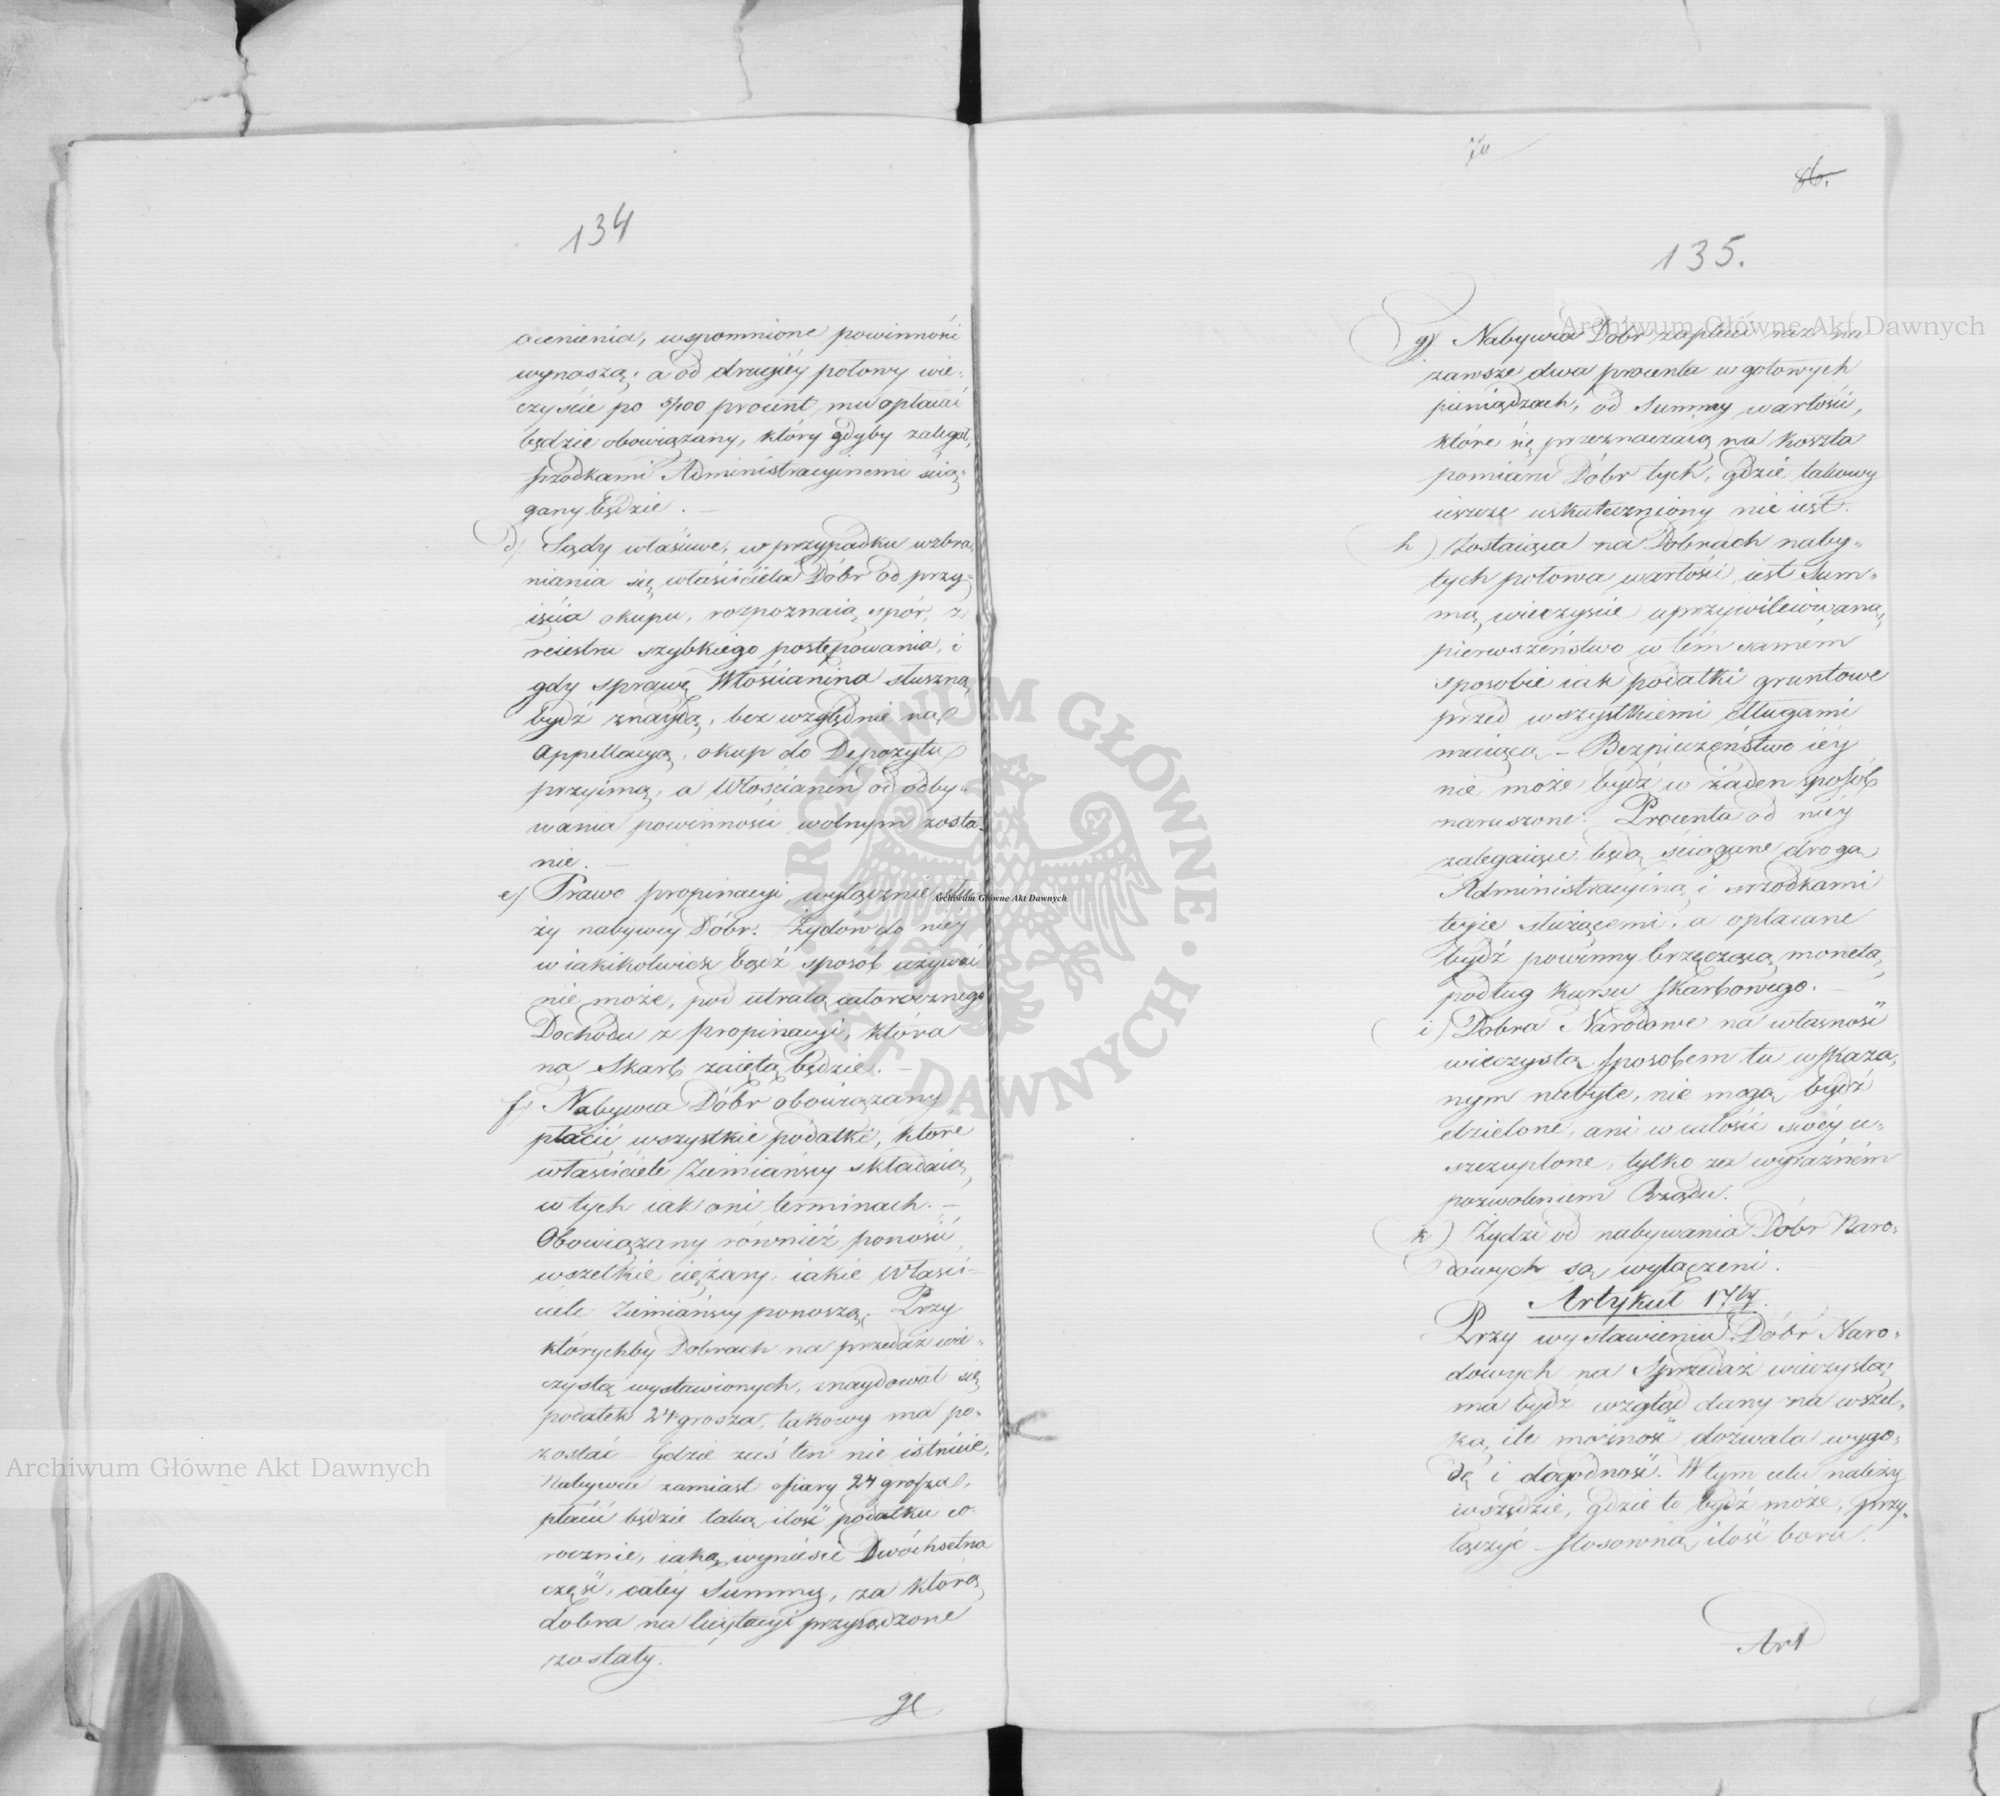 134
ocenienia, wspomnione powinności
wynoszą; a od drugiéy połowy wie-
czyście po 5/100 procent mu opłacać
będzie obowiązany, który gdyby zalegał,
śrzodkami Administracyinemi ścią-
gany będzie. —
d) Sądy właściwe, w przypadku wzbra-
niania się właściciela Dóbr od przy-
ięcia okupu, rozpoznaią spór, z
reiestru szybkiego postępowania, i
gdy sprawę Włościanina słuszną
bydź znaydą, bez względnie na
Appellacyą, okup do Depozytu
przyimą, a Włościanin od odby-
wania powinności wolnym zosta-
nie. —
e) Prawo propinacyi, wyłącznie słu-
ży nabywcy Dóbr. Żydów do niey
w iakikolwiek bądź sposób używać
nie może, pod utratą całorocznego
Dochodu z propinacyi, która
na Skarb zaiętą będzie. —
f) Nabywca Dóbr obowiązany
płacić wszystkie podatki, które
właściciele Ziemiańscy składaią,
w tych iak oni terminach. —
Obowiązany również ponosić
wszelkie ciężary, iakie Właści-
ciele Ziemiańscy ponoszą. Przy
którychby Dobrach na przedaż wie-
czystą wystawionych, znaydował się
podatek 24 grosza, takowy ma po-
zostać Gdzie zaś ten nie istnieie,
Nabywca zamiast ofiary 24 grosza,
płacić będzie taką ilość podatku co-
rocznie, iaką wyniesie Dwóchsetna
część, całéy Summy, za którą
dobra na licytacyi przysądzone
zostały.
g)
86.
135.
g) Nabywca Dóbr zapłaci raz na
zawsze dwa procenta w gotowych
pieniądzach, od Summy wartości,
które się przeznaczaią na koszta
pomiaru Dóbr tych, gdzie takowy
ieszcze uskuteczniony nie iest.
h) Zostaiąca na Dobrach naby-
tych połowa wartości iest Sum-
mą wieczyście uprzywileiowaną,
pierwszeństwo w tém samém
sposobie iak podatki gruntowe
przed wszystkiemi długami
maiącą — Bezpieczeństwo iéy
nie może bydź w żaden sposób
naruszone. Procenta od niéy
zalegaiące, będą ściągane drogą
Administracyiną i srzodkami
teyże służącemi, a opłacane
bydź powinny brzęczącą monetą,
podług kursu skarbowego. —
i) Dobra Narodowe na własność
wieczystą sposobem tu wskaza-
nym nabyte, nie mogą bydź
dzielone, ani w całości swéy u-
szczuplone, tylko za wyraźném
pozwoleniem Rządu.
k) Żydzi od nabywania Dóbr Naro-
dowych są wyłączeni.
Artykuł 17ty.
Przy wystawieniu Dóbr Naro-
dowych na Sprzedaż wieczystą,
ma bydź wzgląd dany na wszel-
ką, ile możność dozwala wygo-
dę i dogodność. W tym celu należy
wszędzie, gdzie to bydź może, przy-
łączyć stosowną ilość boru.
Art
Archiwum Główne Akt Dawnych
Archiwum Główne Akt Dawnych
Archiwum Główne Akt Dawnych
ARCHIWUM GŁÓWNE · AKT DAWNYCH ·